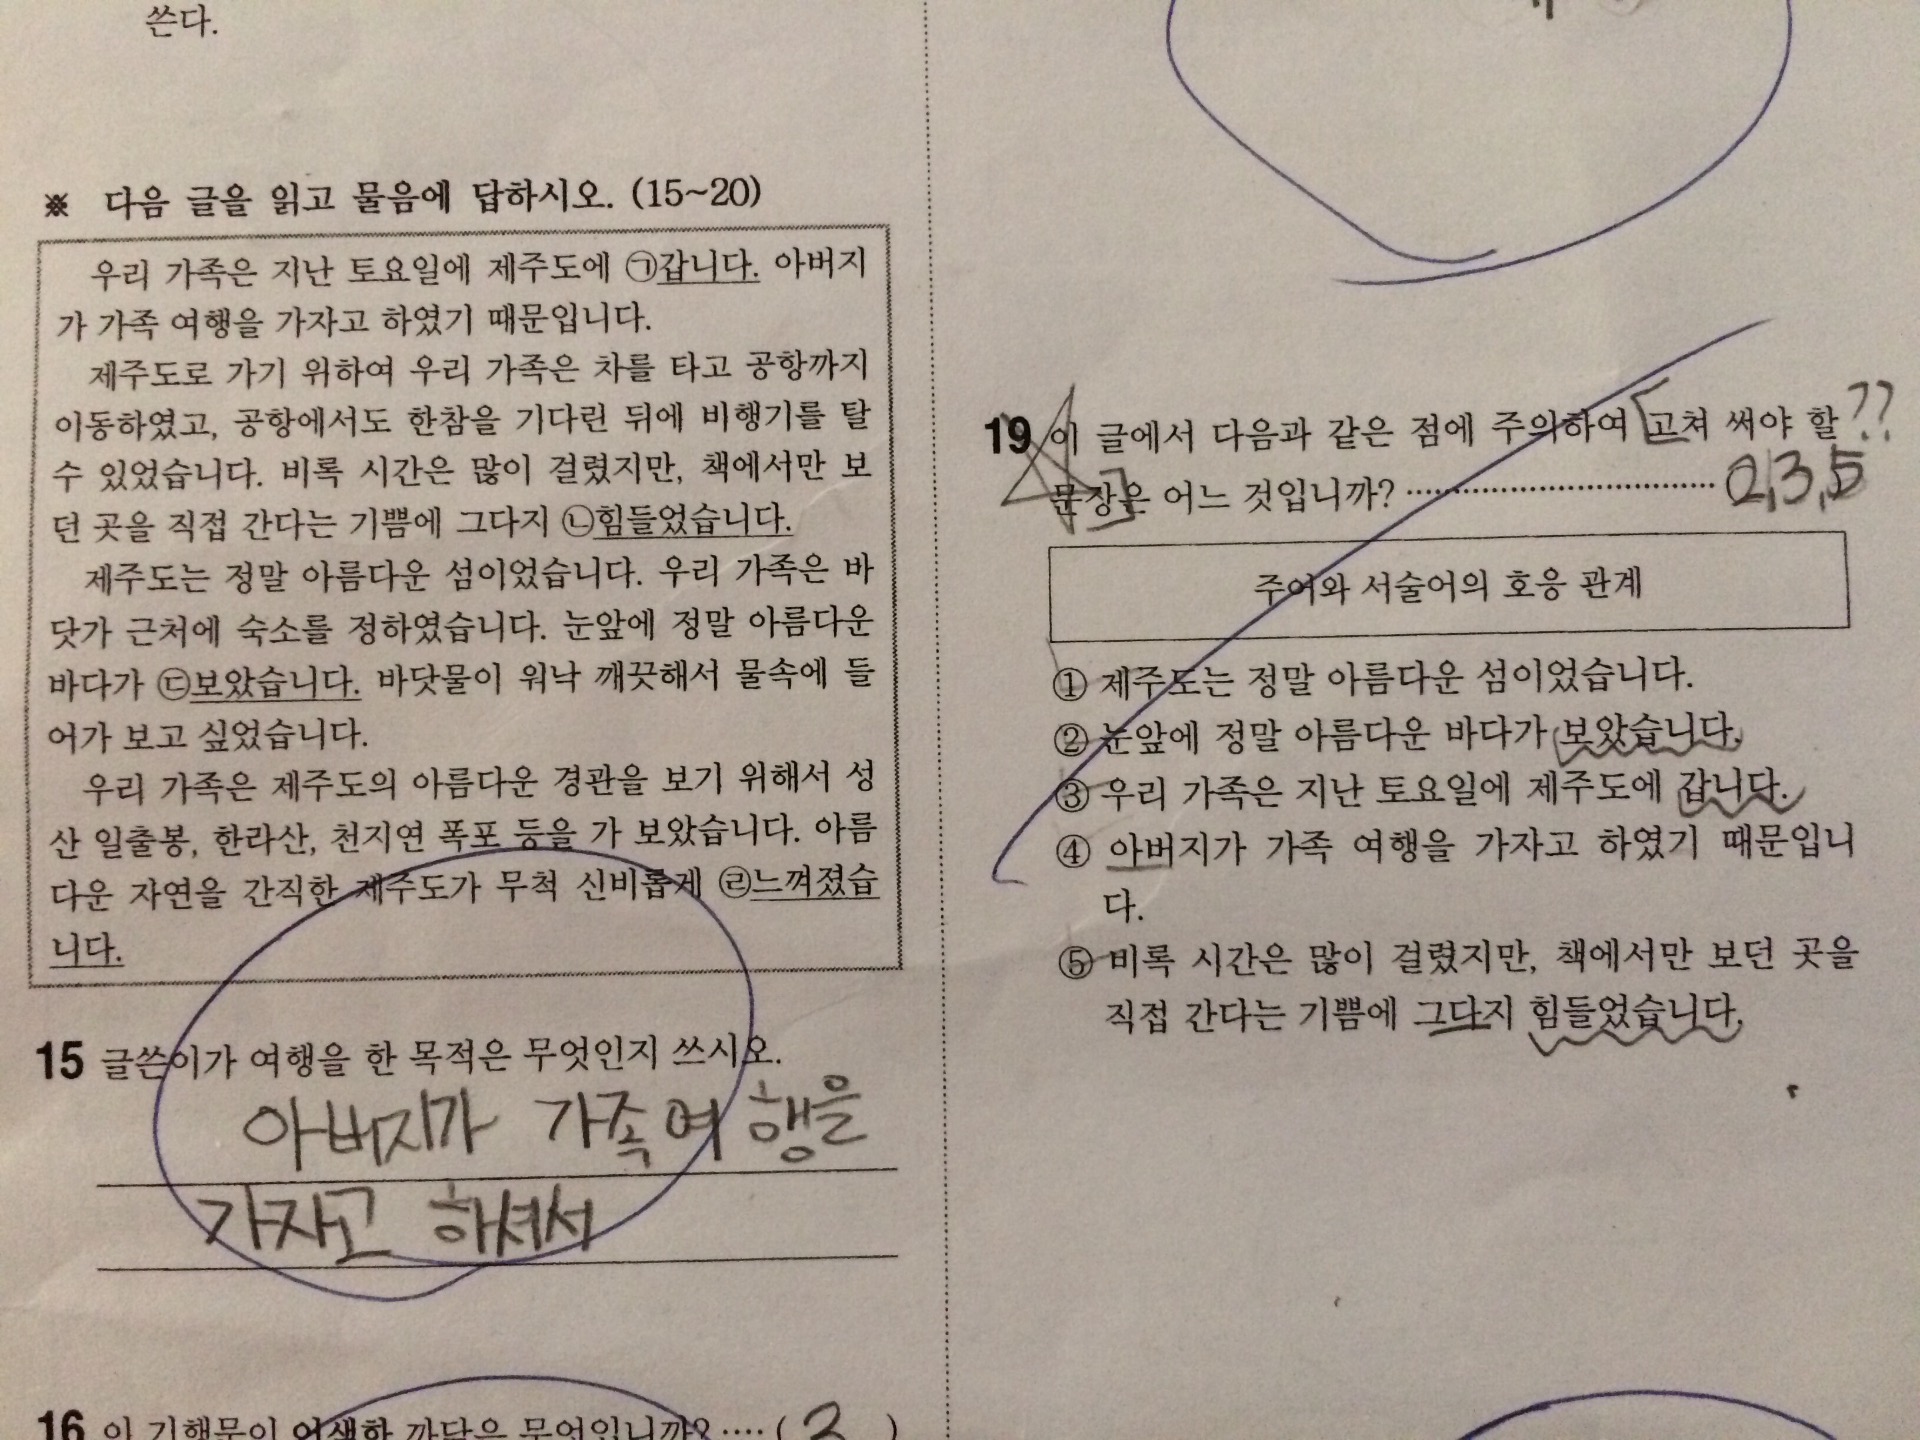 쓴다.
※ 다음 글을 읽고 물음에 답하시오. (15~20)
우리 가족은 지난 토요일에 제주도에 ㉠갑니다. 아버지
가 가족 여행을 가자고 하였기 때문입니다.
제주도로 가기 위하여 우리 가족은 차를 타고 공항까지
이동하였고, 공항에서도 한참을 기다린 뒤에 비행기를 탈
수 있었습니다. 비록 시간은 많이 걸렸지만, 책에서만 보
던 곳을 직접 간다는 기쁨에 그다지 ㉡힘들었습니다.
제주도는 정말 아름다운 섬이었습니다. 우리 가족은 바
닷가 근처에 숙소를 정하였습니다. 눈앞에 정말 아름다운
바다가 ㉢보았습니다. 바닷물이 워낙 깨끗해서 물속에 들
어가 보고 싶었습니다.
우리 가족은 제주도의 아름다운 경관을 보기 위해서 성
산 일출봉, 한라산, 천지연 폭포 등을 가 보았습니다. 아름
다운 자연을 간직한 제주도가 무척 신비롭게 ㉣느껴졌습
니다.
15 글쓴이가 여행을 한 목적은 무엇인지 쓰시오.
아버지가 가족여행을
가자고 하셔서
16 이 기행문이 어색한 까닭은 무엇입니까? ···· ( 3 )
19 이 글에서 다음과 같은 점에 주의하여 고쳐 써야 할 ??
문장은 어느 것입니까? ································ 2,3,5
주어와 서술어의 호응 관계
① 제주도는 정말 아름다운 섬이었습니다.
② 눈앞에 정말 아름다운 바다가 보았습니다.
③ 우리 가족은 지난 토요일에 제주도에 갑니다.
④ 아버지가 가족 여행을 가자고 하였기 때문입니
다.
⑤ 비록 시간은 많이 걸렸지만, 책에서만 보던 곳을
직접 간다는 기쁨에 그다지 힘들었습니다.